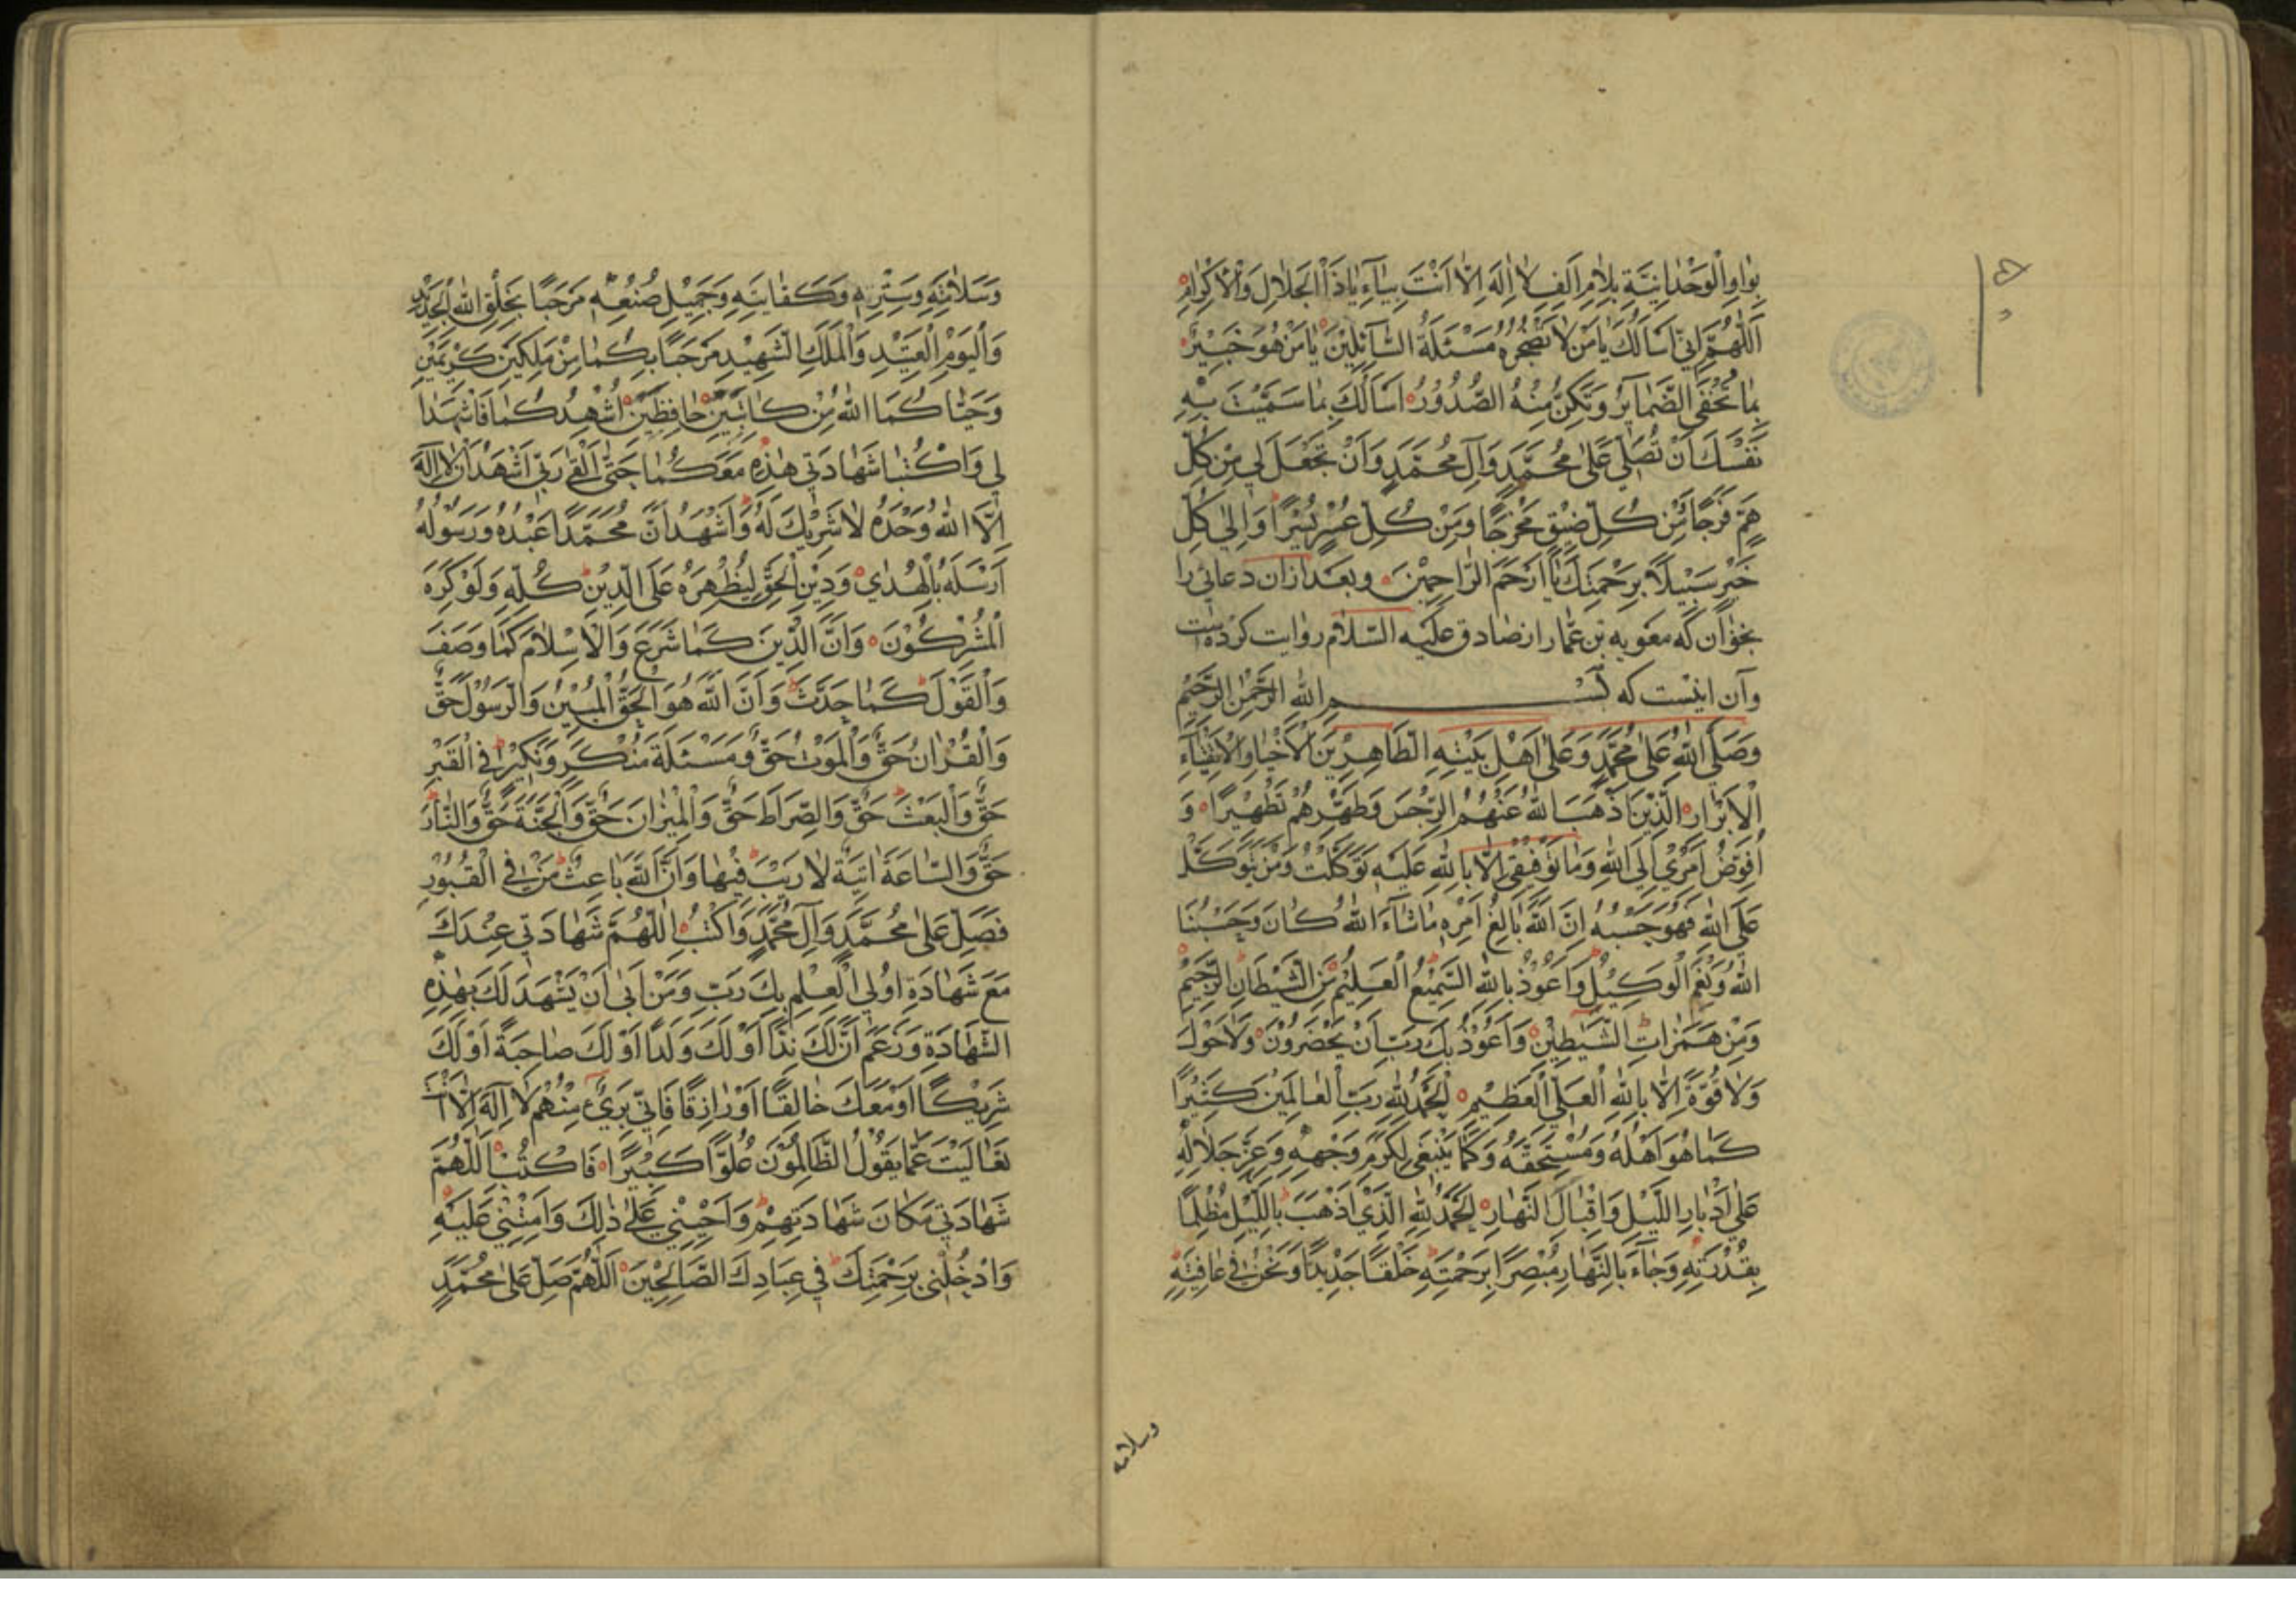 بِوٰاوِ الْوَحْدٰانِيَّةِ بِلٰامِ اَلِفِ لٰا اِلٰهَ اِلّٰا اَنْتَ بِيٰآءِ يٰا ذَا الْجَلٰالِ وَالْاِكْرٰامِ
اَللّٰهُمَّ اِنّي اَسْاَلُكَ يٰا مَنْ لٰا تُضْجِرُهُ مَسْئَلَةُ السّٰآئِلينَ يٰا مَنْ هُوَ خَبيرٌ
بِمٰا تُخْفِي الضَّمٰايِرُ وَتَكِنُّ مِنْهُ الصُّدُورُ اَسْاَلُكَ بِمٰا سَمَّيْتَ بِهِ
نَفْسَكَ اَنْ تُصَلِّي عَلىٰ مُحَمَّدٍ وَآلِ مُحَمَّدٍ وَاَنْ تَجْعَلَ لي مِنْ كُلِّ
هَمٍّ فَرَجًا مِنْ كُلِّ ضيقٍ مَخْرَجًا وَمِنْ كُلِّ عُسْرٍ يُسْرًا وَاِلىٰ كُلِّ
خَيْرٍ سَبيلًا بِرَحْمَتِكَ يٰا اَرْحَمَ الرّٰاحِمينَ وبعد ازان دعائی را
بخوان که معویه بن عمار از صادق علیه السّلام روایت کرده است
وآن اینست که بسم الله الرَّحْمٰنِ الرَّحيمِ
وَصَلَّى اللّٰهُ عَلىٰ مُحَمَّدٍ وَعَلىٰ اَهْلِ بَيْتِهِ الطّٰاهِرينَ الْاَخْيٰارِ الْاَتْقِيٰآءِ
الْاَبْرٰارِ الَّذينَ اَذْهَبَ اللّٰهُ عَنْهُمُ الرِّجْسَ وَطَهَّرَهُمْ تَطْهيرًا وَ
اُفَوِّضُ اَمْري اِلَى اللّٰهِ وَمٰا تَوْفيقي اِلّٰا بِاللّٰهِ عَلَيْهِ تَوَكَّلْتُ وَمَنْ يَتَوَكَّلْ
عَلَى اللّٰهِ فَهُوَ حَسْبُهُ اِنَّ اللّٰهَ بٰالِغُ اَمْرِهِ مٰا شٰآءَ اللّٰهُ كٰانَ وَحَسْبُنَا
اللّٰهُ وَنِعْمَ الْوَكيلُ وَاَعُوذُ بِاللّٰهِ السَّميعِ الْعَليمِ مِنَ الشَّيْطٰانِ الرَّجيمِ
وَمِنْ هَمَزٰاتِ الشَّيٰطينِ وَاَعُوذُ بِكَ رَبِّ اَنْ يَحْضُرُونَ وَلٰا حَوْلَ
وَلٰا قُوَّةَ اِلّٰا بِاللّٰهِ الْعَلِيِّ الْعَظيمِ اَلْحَمْدُ لِلّٰهِ رَبِّ الْعٰالَمينَ كَثيرًا
كَمٰا هُوَ اَهْلُهُ وَمُسْتَحِقُّهُ وَكَمٰا يَنْبَغي لِكَرَمِ وَجْهِهِ وَعِزِّ جَلٰالِهِ
عَلىٰ اِدْبٰارِ اللَّيْلِ وَاِقْبٰالِ النَّهٰارِ اَلْحَمْدُ لِلّٰهِ الَّذي اَذْهَبَ بِاللَّيْلِ مُظْلِمًا
بِقُدْرَتِهِ وَجٰآءَ بِالنَّهٰارِ مُبْصِرًا بِرَحْمَتِهِ خَلْقًا جَديدًا وَنَحْنُ في عٰافِيَتِهِ
وسلامته
وَسَلٰامَتِهِ وَسِتْرِهِ وَكِفٰايَتِهِ وَجَميلِ صُنْعِهِ مَرْحَبًا بِخَلْقِ اللّٰهِ الْجَديدِ
وَالْيَوْمِ الْعَتيدِ وَالْمَلَكِ الشَّهيدِ مَرْحَبًا بِكُمٰا مِنْ مَلَكَيْنِ كَريمَيْنِ
وَحَيّٰاكُمَا اللّٰهُ مِنْ كٰاتِبَيْنِ حٰافِظَيْنِ اُشْهِدُكُمٰا فَاشْهَدٰا
لي وَاكْتُبٰا شَهٰادَتي هٰذِهِ مَعَكُمٰا حَتّىٰ اَلْقىٰ رَبّي اَشْهَدُ اَنْ لٰا اِلٰهَ
اِلَّا اللّٰهُ وَحْدَهُ لٰا شَريكَ لَهُ وَاَشْهَدُ اَنَّ مُحَمَّدًا عَبْدُهُ وَرَسُولُهُ
اَرْسَلَهُ بِالْهُدىٰ وَدينِ الْحَقِّ لِيُظْهِرَهُ عَلَى الدّينِ كُلِّهِ وَلَوْ كَرِهَ
الْمُشْرِكُونَ وَاَنَّ الدّينَ كَمٰا شَرَعَ وَالْاِسْلٰامَ كَمٰا وَصَفَ
وَالْقَوْلَ كَمٰا حَدَّثَ وَاَنَّ اللّٰهَ هُوَ الْحَقُّ الْمُبينُ وَالرَّسُولَ حَقٌّ
وَالْقُرْاٰنَ حَقٌّ وَالْمَوْتَ حَقٌّ وَمَسْئَلَةَ مُنْكَرٍ وَنَكيرٍ في الْقَبْرِ
حَقٌّ وَالْبَعْثَ حَقٌّ وَالصِّرٰاطَ حَقٌّ وَالْميزٰانَ حَقٌّ وَالْجَنَّةَ حَقٌّ وَالنّٰارَ
حَقٌّ وَالسّٰاعَةَ اٰتِيَةٌ لٰا رَيْبَ فيهٰا وَاَنَّ اللّٰهَ بٰاعِثُ مَنْ في الْقُبُورِ
فَصَلِّ عَلىٰ مُحَمَّدٍ وَآلِ مُحَمَّدٍ وَاكْتُبِ اللّٰهُمَّ شَهٰادَتي عِنْدَكَ
مَعَ شَهٰادَةِ اُولي الْعِلْمِ بِكَ رَبِّ وَمَنْ اَبىٰ اَنْ يَشْهَدَ لَكَ بِهٰذِهِ
الشَّهٰادَةِ وَزَعَمَ اَنَّ لَكَ نِدًّا اَوْ لَكَ وَلَدًا اَوْ لَكَ صٰاحِبَةً اَوْ لَكَ
شَريكًا اَوْ مَعَكَ خٰالِقًا اَوْ رٰازِقًا فَاِنّي بَريءٌ مِنْهُمْ لٰا اِلٰهَ اِلّٰا اَنْتَ
تَعٰالَيْتَ عَمّٰا يَقُولُ الظّٰالِمُونَ عُلُوًّا كَبيرًا فَاكْتُبِ اللّٰهُمَّ
شَهٰادَتي مَكٰانَ شَهٰادَتِهِمْ وَاَحْيِني عَلىٰ ذٰلِكَ وَاَمِتْني عَلَيْهِ
وَادْخِلْني بِرَحْمَتِكَ في عِبٰادِكَ الصّٰالِحينَ اَللّٰهُمَّ صَلِّ عَلىٰ مُحَمَّدٍ